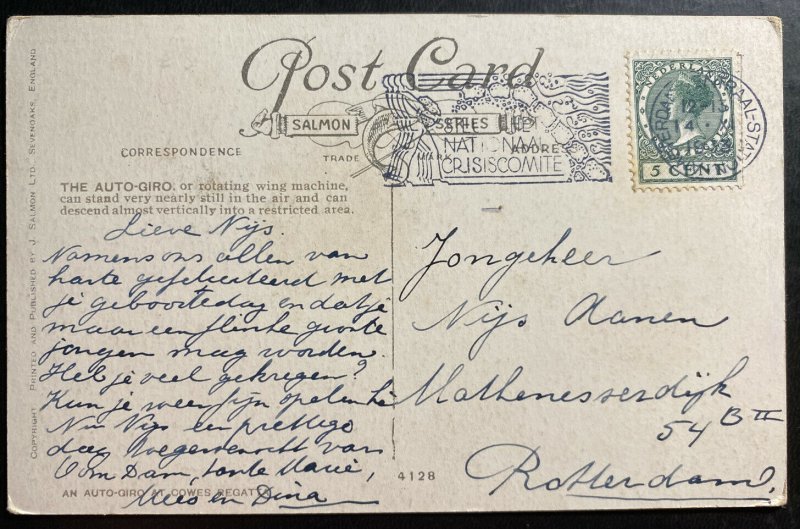 Post Card
SALMON SERIES
TRADE MARK
CORRESPONDENCE
ADDRESS
STEUNT HET
NATIONAAL
CRISISCOMITE
NEDERLAND
5 CENT
THE AUTO-GIRO, or rotating wing machine,
can stand very nearly still in the air and can
descend almost vertically into a restricted area.
Lieve Nijs.
Namens ons allen van
harte gefeliciteerd met
je geboortedag en dat je
maar een flinke groote
jongen mag worden.
Heb je veel gekregen?
Kun je weer fijn spelen hè
Nu Nijs een prettige
dag toegewenscht van
Oom Dam, tante Marie,
Mees en Dina
Jongeheer
Nijs Aanen
Mathenesserdijk
54 B II
Rotterdam.
4128
AN AUTO-GIRO AT COWES REGATTA
COPYRIGHT PRINTED AND PUBLISHED BY J. SALMON LTD., SEVENOAKS, ENGLAND